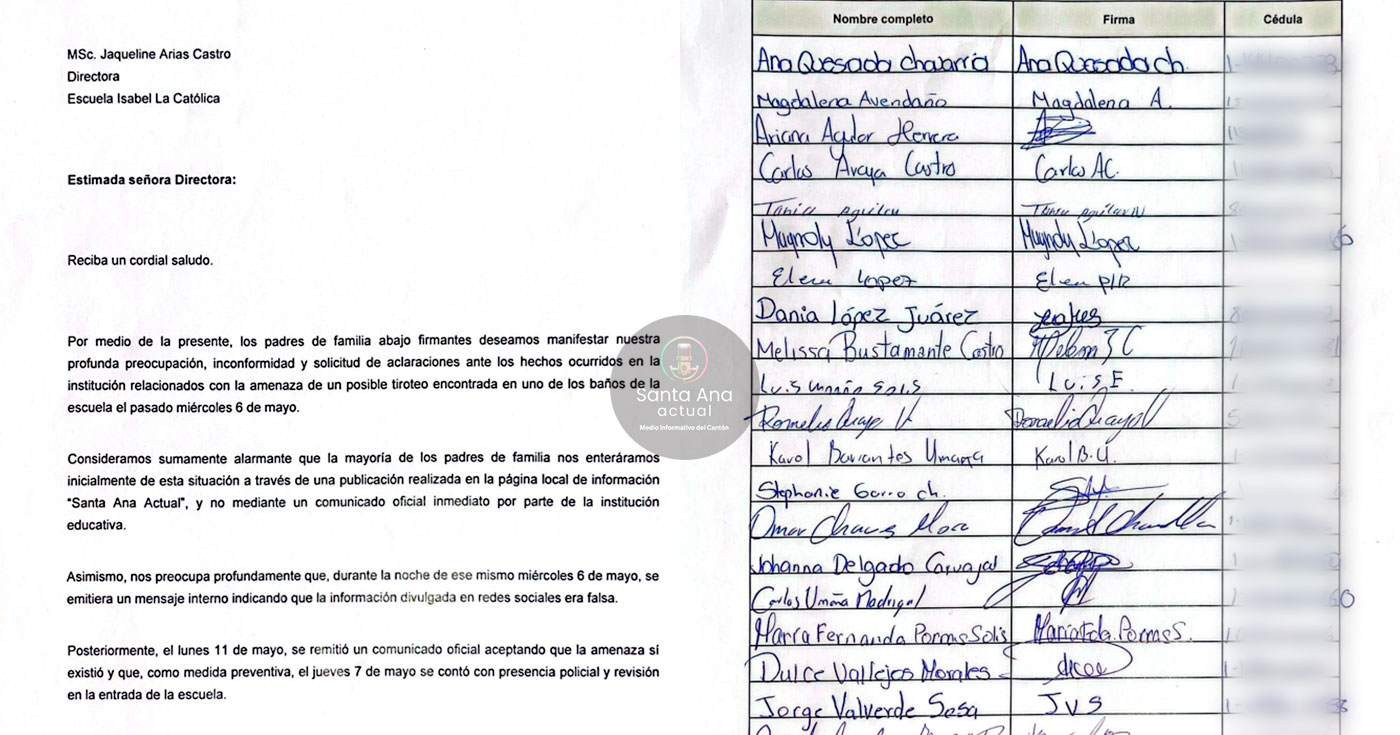 MSc. Jaqueline Arias Castro
Directora
Escuela Isabel La Católica
Estimada señora Directora:
Reciba un cordial saludo.
Por medio de la presente, los padres de familia abajo firmantes deseamos manifestar nuestra
profunda preocupación, inconformidad y solicitud de aclaraciones ante los hechos ocurridos en la
institución relacionados con la amenaza de un posible tiroteo encontrada en uno de los baños de la
escuela el pasado miércoles 6 de mayo.
Consideramos sumamente alarmante que la mayoría de los padres de familia nos enteráramos
inicialmente de esta situación a través de una publicación realizada en la página local de información
“Santa Ana Actual”, y no mediante un comunicado oficial inmediato por parte de la institución
educativa.
Asimismo, nos preocupa profundamente que, durante la noche de ese mismo miércoles 6 de mayo, se
emitiera un mensaje interno indicando que la información divulgada en redes sociales era falsa.
Posteriormente, el lunes 11 de mayo, se remitió un comunicado oficial aceptando que la amenaza sí
existió y que, como medida preventiva, el jueves 7 de mayo se contó con presencia policial y revisión
en la entrada de la escuela.
Santa Ana
actual
Medio Informativo del Cantón
Nombre completo Firma Cédula
Ana Quesada Chavarría Ana Quesada ch.
Magdalena Avendaño Magdalena A.
Ariana Aguilar Herrera
Carlos Araya Castro Carlos AC.
Tania Aguilar Tania Aguilar N
Magnoly López Magnoly López
Elena Lopez Elena
Dania López Juárez
Melissa Bustamante Castro
Luis Umaña Solis Luis E.
Romelia Araya V
Karol Barrantes Umaña Karol B.U.
Stephanie Garro ch.
Omar Chaves Mora
Johanna Delgado Carvajal
Carlos Umaña Madrigal
María Fernanda Porras Solís María Fda. Porras S.
Dulce Vallejos Morales
Jorge Valverde Sosa JVS